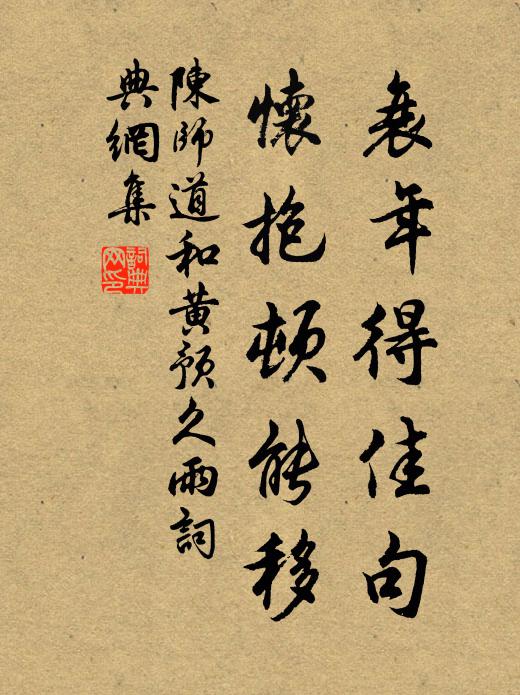 衰年得佳句
懷抱頓能移
陳師道和黃預久雨詞
典網集
詞典
网印